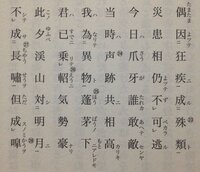 偶因狂疾成殊類
災患相仍不可逃
今日爪牙誰敢敵
当時声跡共相高
我為異物蓬茅下
君已乗軺気勢豪
此夕渓山対明月
不成長嘯但成嘷